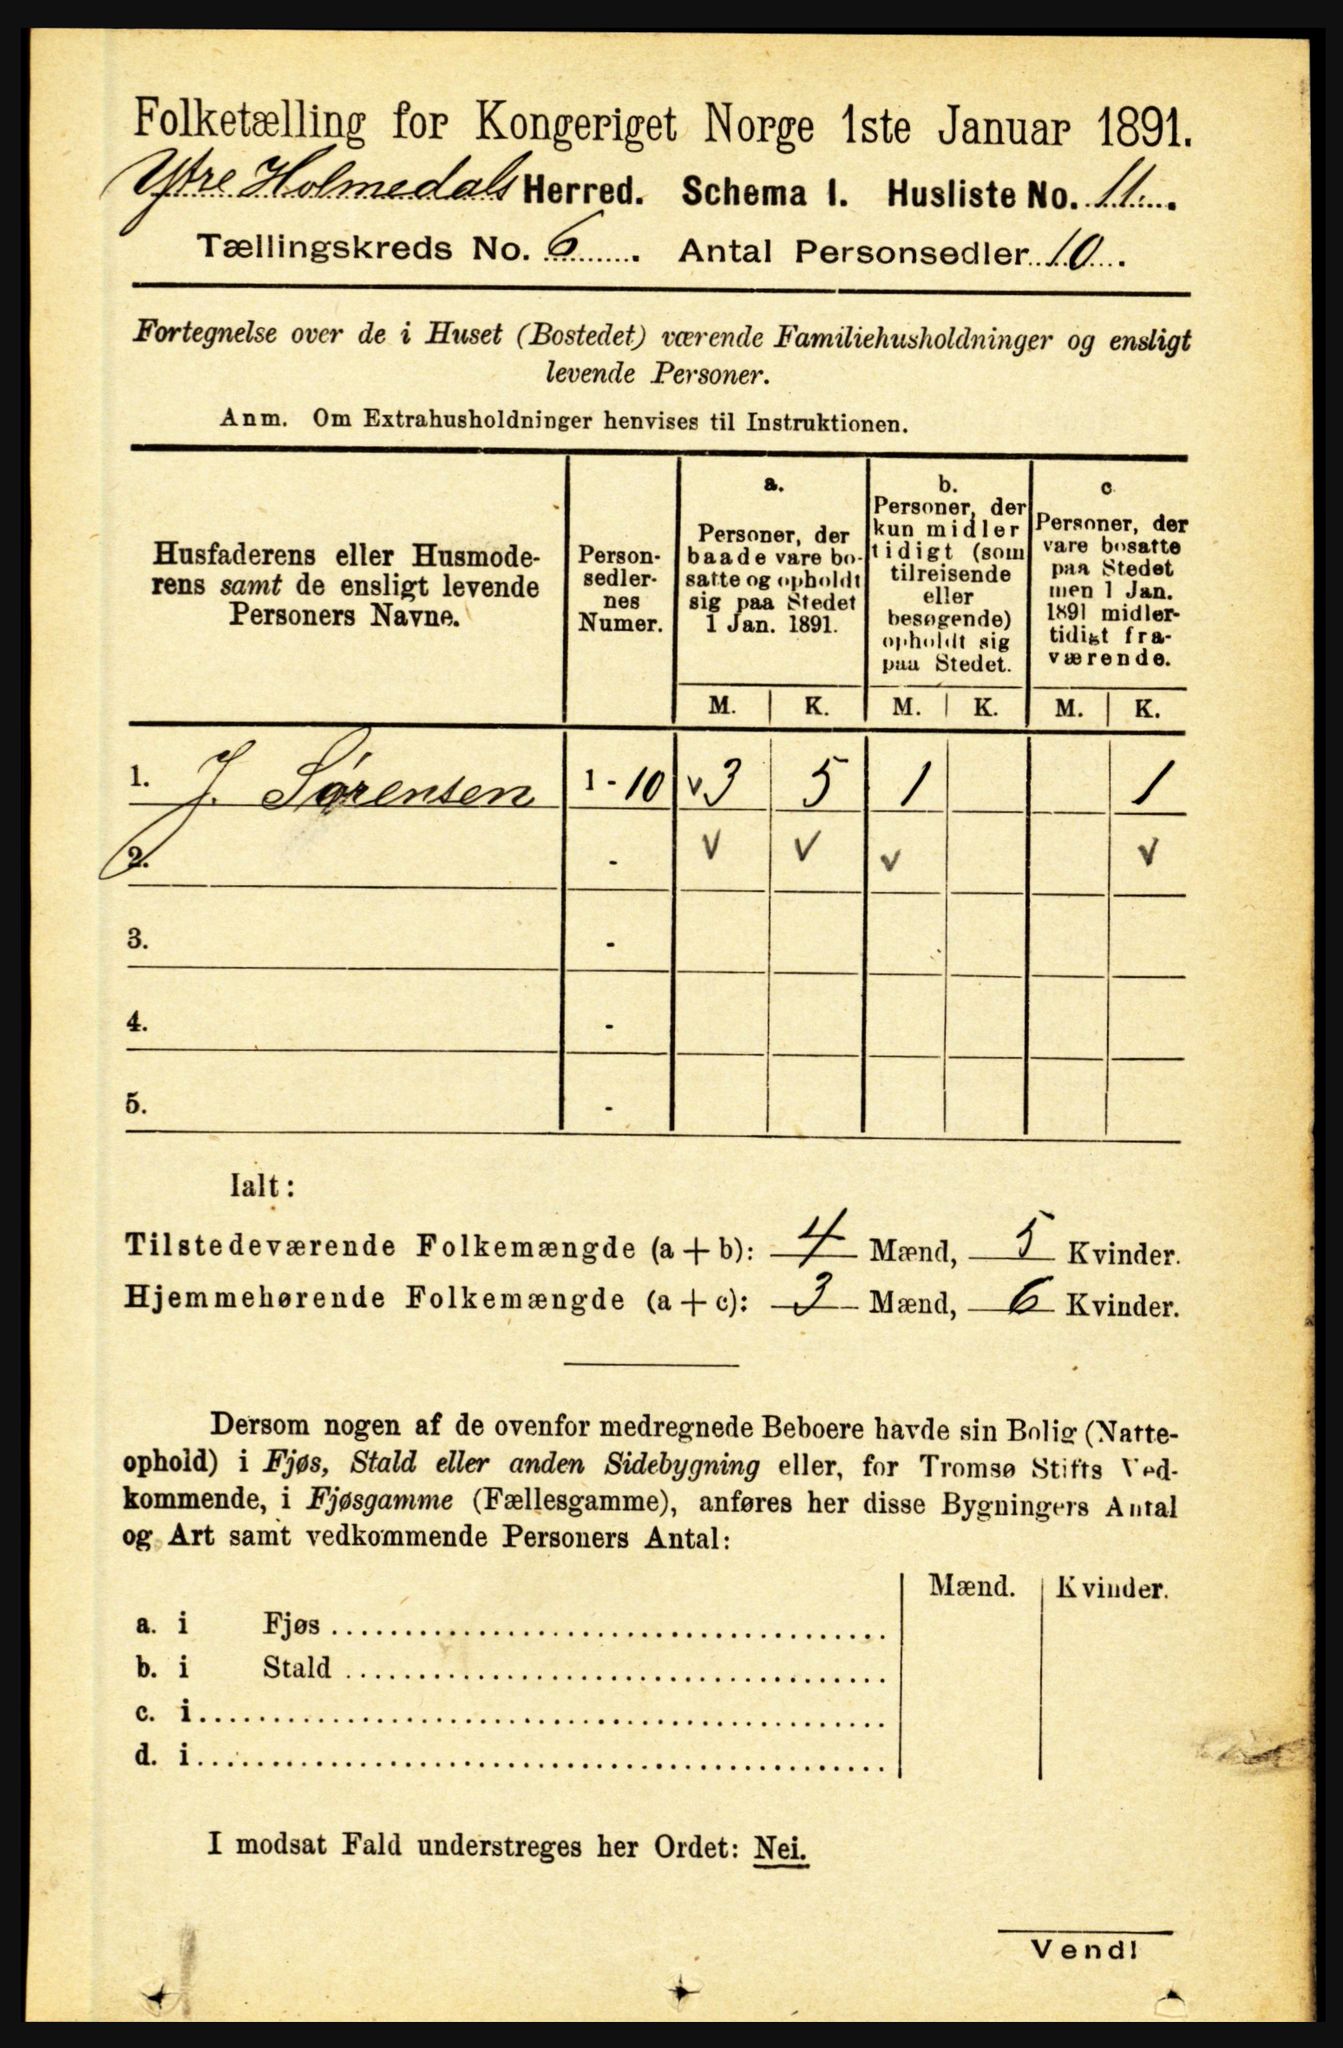 Folketælling for Kongeriget Norge 1ste Januar 1891.
Ytre Holmedals Herred. Schema I. Husliste No. 11.
Tællingskreds No. 6. Antal Personsedler 10.
Fortegnelse over de i Huset (Bostedet) værende Familiehusholdninger og ensligt
levende Personer.
Anm. Om Extrahusholdninger henvises til Instruktionen.
Husfaderens eller Husmode-
rens samt de ensligt levende
Personers Navne.
Person-
sedler-
nes
Numer.
a.
Personer, der
baade vare bo-
satte og opholdt
sig paa Stedet
1 Jan. 1891.
b.
Personer, der
kun midler
tidigt (som
tilreisende
eller
besøgende)
opholdt sig
paa Stedet.
c
Personer, der
vare bosatte
paa Stedet
men 1 Jan.
1891 midler-
tidigt fra-
værende.
M. K. M. K. M. K.
1. J. Sørensen 1 - 10 v 3 5 1 1
2. - v v v v
3. -
4. -
5. -
Ialt:
Tilstedeværende Folkemængde (a + b): 4 Mænd, 5 Kvinder.
Hjemmehørende Folkemængde (a + c): 3 Mænd, 6 Kvinder.
Dersom nogen af de ovenfor medregnede Beboere havde sin Bolig (Natte-
ophold) i Fjøs, Stald eller anden Sidebygning eller, for Tromsø Stifts Ved-
kommende, i Fjøsgamme (Fællesgamme), anføres her disse Bygningers Antal
og Art samt vedkommende Personers Antal:
Mænd. Kvinder.
a. i Fjøs
b. i Stald
c. i
d. i
I modsat Fald understreges her Ordet: Nei.
Vend!